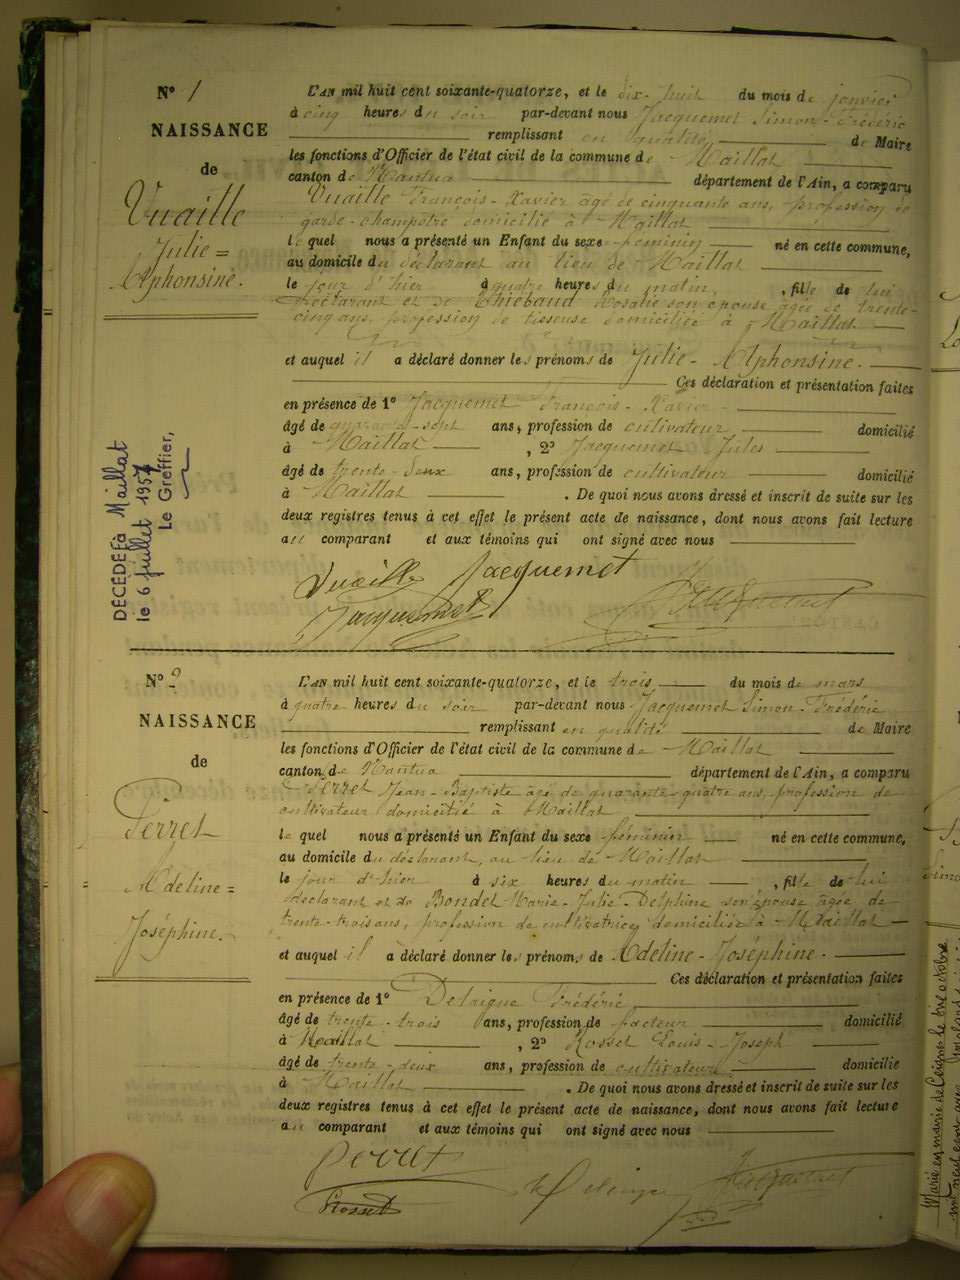 N° 1
NAISSANCE
de
Vuaille
Julie=
Alphonsine.
DECÉDÉE à Maillat
le 6 juillet 1957
Le Greffier,
L'AN mil huit cent soixante-quatorze, et le dix-huit du mois de janvier
à cinq heures du soir par-devant nous Jacquemet Simon-Fréderic
remplissant en qualité de Maire
les fonctions d'Officier de l'état civil de la commune de Maillat
canton de Nantua département de l'Ain, a comparu
Vuaille François-Xavier âgé de cinquante ans, profession de
garde-champêtre domicilié à Maillat
lequel nous a présenté un Enfant du sexe féminin né en cette commune,
au domicile du déclarant au lieu de Maillat
le jour d'hier à quatre heures du matin, , fille de lui
déclarant et de Thiébaud Rosalie son épouse âgée de trente-
cinq ans, profession de tisseuse domiciliée à Maillat.
et auquel il a déclaré donner les prénoms de Julie-Alphonsine.
Ces déclaration et présentation faites
en présence de 1° Jacquemet François-Xavier
âgé de quarante-sept ans, profession de cultivateur domicilié
à Maillat , 2° Jacquemet Jules
âgé de trente-deux ans, profession de cultivateur domicilié
à Maillat . De quoi nous avons dressé et inscrit de suite sur les
deux registres tenus à cet effet le présent acte de naissance, dont nous avons fait lecture
au comparant et aux témoins qui ont signé avec nous
Vuaille Jacquemet
Jacquemet Jacquemet
N° 2
NAISSANCE
de
Perret
Adeline=
Joséphine.
L'AN mil huit cent soixante-quatorze, et le trois du mois de mars
à quatre heures du soir par-devant nous Jacquemet Simon-Fréderic
remplissant en qualité de Maire
les fonctions d'Officier de l'état civil de la commune de Maillat
canton de Nantua département de l'Ain, a comparu
Perret Jean-Baptiste âgé de quarante-quatre ans, profession de
cultivateur domicilié à Maillat
lequel nous a présenté un Enfant du sexe féminin né en cette commune,
au domicile du déclarant, au lieu de Maillat
le jour d'hier à six heures du matin , fille de lui
déclarant et de Bondet Marie-Julie-Delphine son épouse âgée de
trente-trois ans, profession de cultivatrice, domiciliée à Maillat
et auquel il a déclaré donner les prénoms de Adeline-Joséphine.
Ces déclaration et présentation faites
en présence de 1° Delaigue Fréderic
âgé de trente-trois ans, profession de facteur domicilié
à Maillat , 2° Rosset Louis-Joseph
âgé de trente-deux ans, profession de cultivateur domicilié
à Maillat . De quoi nous avons dressé et inscrit de suite sur les
deux registres tenus à cet effet le présent acte de naissance, dont nous avons fait lecture
au comparant et aux témoins qui ont signé avec nous
Perret
Rosset Delaigue Jacquemet